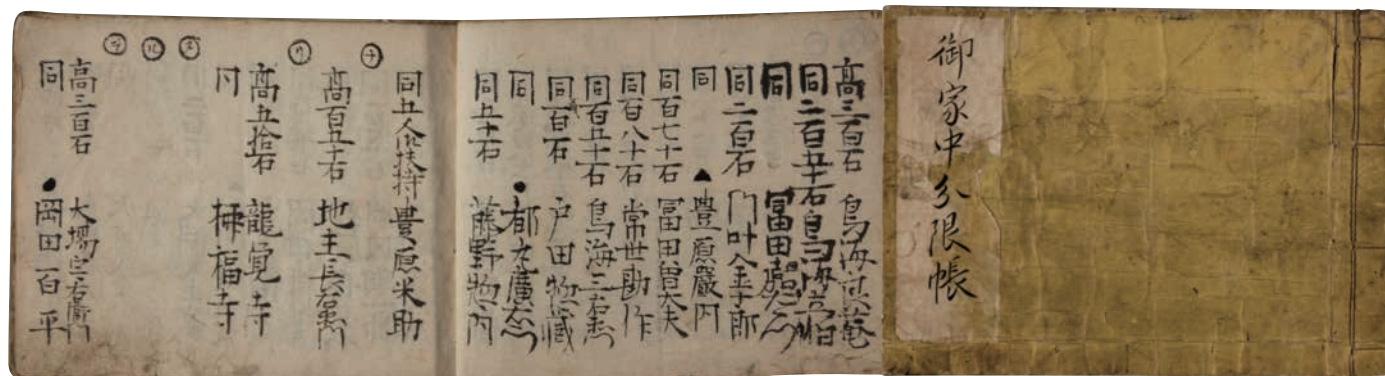 御家中分限帳
高三百石 鳥海良菴
同二百五十石 鳥海立碩
同 冨田
同二百石 門叶金十郎
同 ▲豊原嚴内
同百七十石 冨田曽大夫
同百八十石 常世勘作
同百五十石 鳥海三右衛門
同二百石 戸田惣蔵
同 ●都丸廣右衛門
同五十石 藤野惣内
同五人扶持 豊原米助
高百五十石 地主長右衛門
高五拾石 龍覚寺
同 福寺
高三百石 大場宇右衛門
同 ●岡田百平